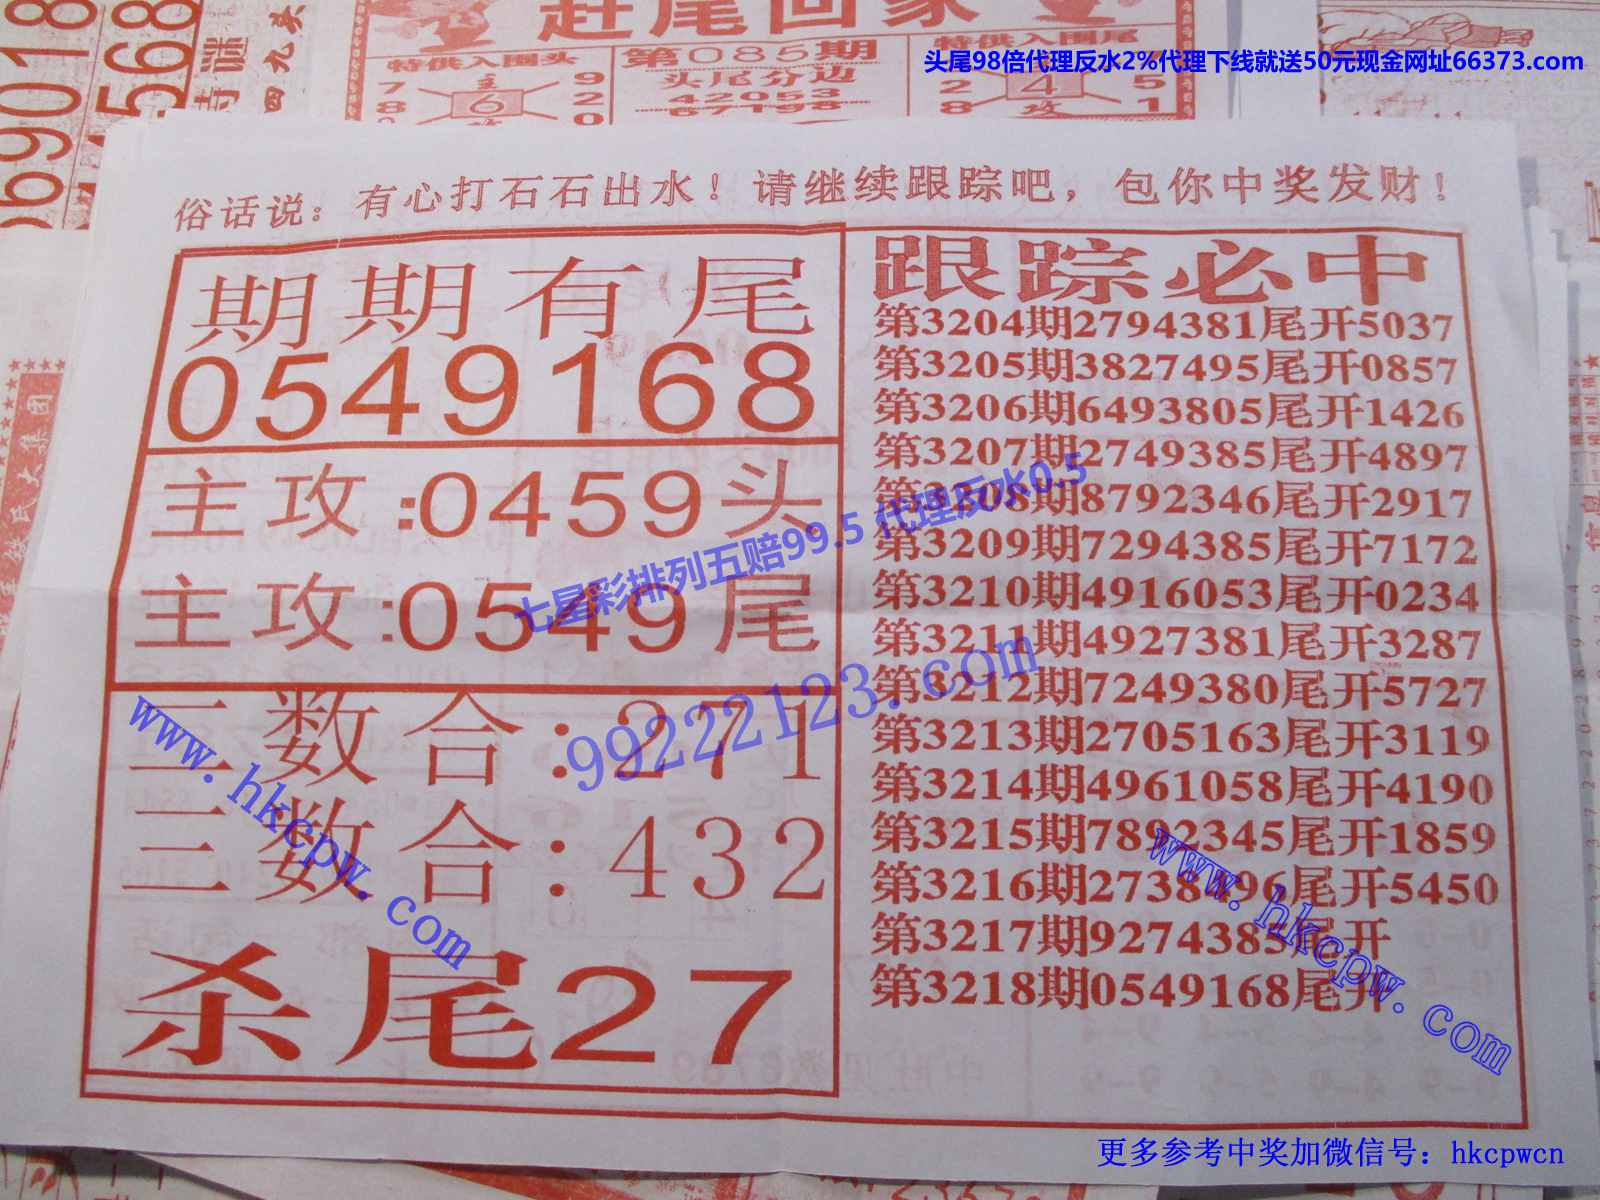 赶尾回家
头尾98倍代理反水2%代理下线就送50元现金网址66373.com
特供入围头
第085期
特供入围尾
头尾分边
42053
67198
俗话说：有心打石石出水！请继续跟踪吧，包你中奖发财！
期期有尾
0549168
主攻:0459头
主攻:0549尾
二数合:271
三数合:432
杀尾27
跟踪必中
第3204期2794381尾开5037
第3205期3827495尾开0857
第3206期6493805尾开1426
第3207期2749385尾开4897
第3208期8792346尾开2917
第3209期7294385尾开7172
第3210期4916053尾开0234
第3211期4927381尾开3287
第3212期7249380尾开5727
第3213期2705163尾开3119
第3214期4961058尾开4190
第3215期7892345尾开1859
第3216期2738496尾开5450
第3217期9274385尾开
第3218期0549168尾开
七星彩排列五赔99.5 代理反水0.5
99222123.com
www.hkcpw.com
www.hkcpw.com
更多参考中奖加微信号：hkcpwcn